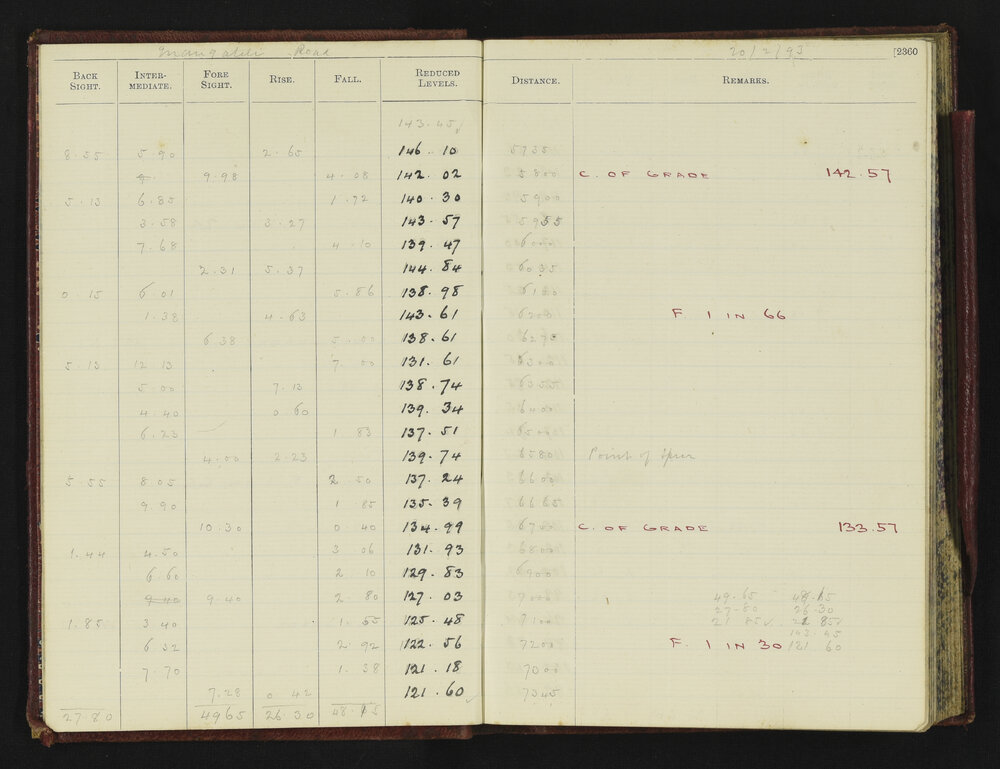 Road 20/2/93 [2360
BACK SIGHT. INTER-MEDIATE. FORE SIGHT. RISE. FALL. REDUCED LEVELS. DISTANCE. REMARKS.
143.45
8.55 5.90 2.65 146.10 5735
9.98 4.08 142.02 5800 C. OF GRADE 142.57
5.13 6.85 1.72 140.30 5900
3.58 3.27 143.57 5955
7.68 4.10 139.47 6000
2.31 5.37 144.84 6035
0.15 6.01 5.86 138.98
1.38 4.63 143.61 F. 1 IN 66
6.38 5.00 138.61 6275
5.13 12.13 7.00 131.61 6300
5.00 7.13 138.74 6355
4.40 0.60 139.34 6400
6.23 1.83 137.51 6500
4.00 2.23 139.74 6580 Point of spur
5.55 8.05 2.50 137.24 6600
9.90 1.85 135.39 6665
10.30 0.40 134.99 6700 C. OF GRADE 133.57
1.44 4.50 3.06 131.93 6800
6.60 2.10 129.83 6900
9.40 9.40 2.80 127.03 49.65 48.15
1.85 3.40 1.55 125.48 7100 27.80 26.30
21.85 21.85
143.45
6.32 2.92 122.56 7200 F. 1 IN 30 121.60
7.70 1.38 121.18 7000
7.28 0.42 121.60 7345
27.80 49.65 26.30 48.15